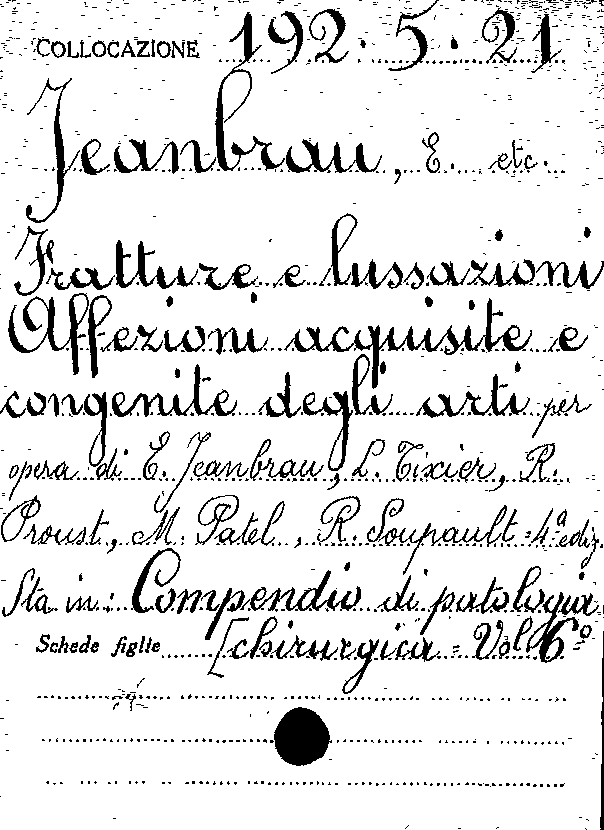 COLLOCAZIONE 192.5.21
Jeanbrau, E. etc.
Fratture e lussazioni
Affezioni acquisite e
congenite degli arti per
opera di E. Jeanbrau, L. Tixier, R.
Proust, M. Patel, R. Soupault = 4ª ediz.
Sta in: Compendio di patologia
Schede figlie [chirurgica = Vol 6º